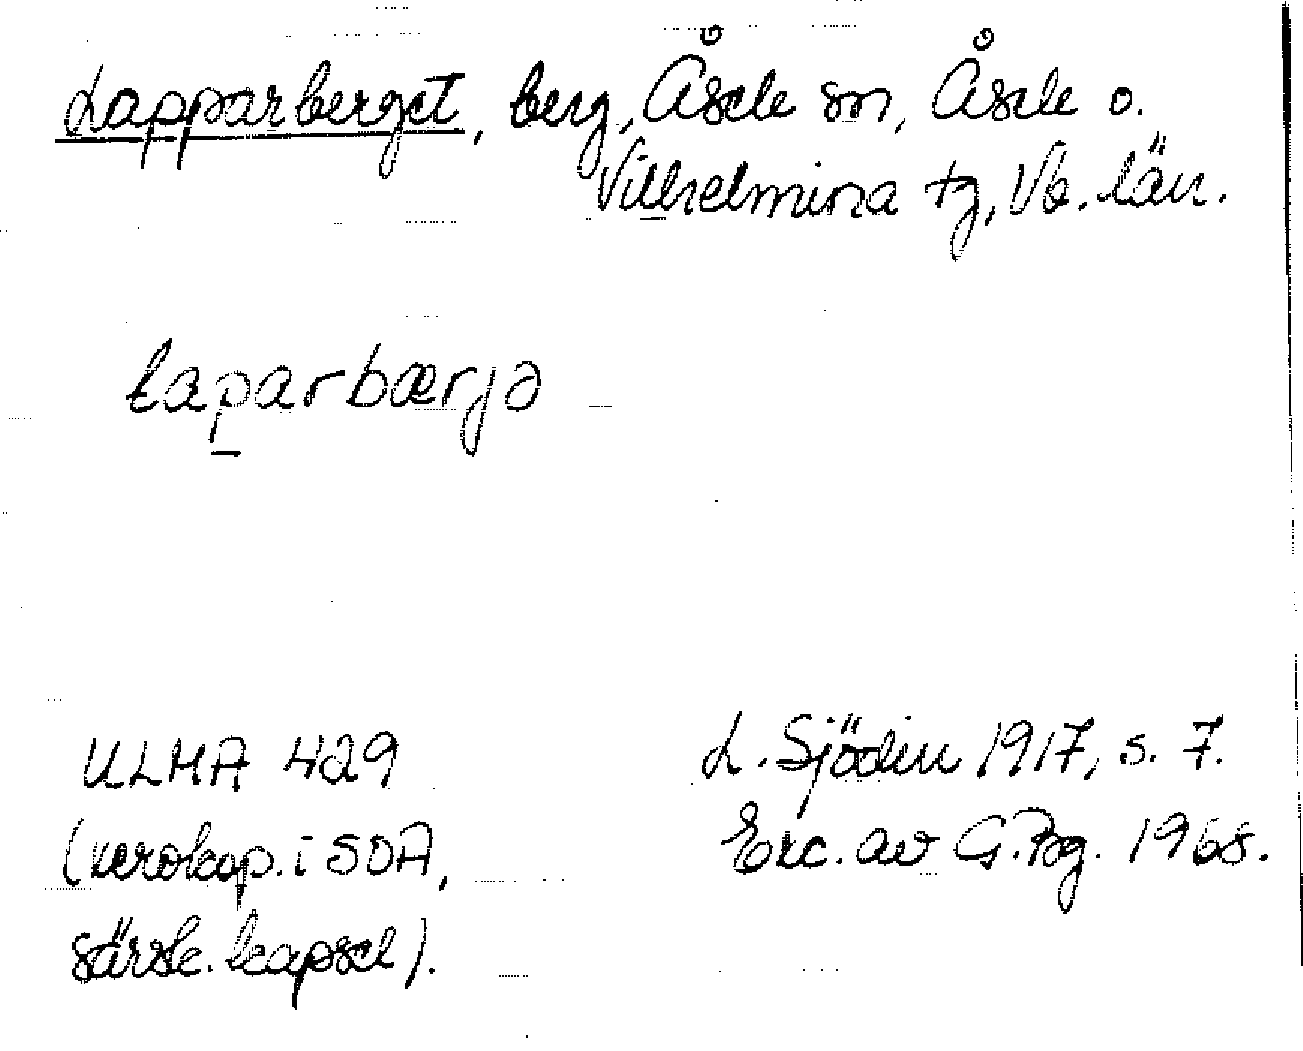 Lapparberget, berg, Åsele sn, Åsele o.
Vilhelmina tg, Vb. län.
laparbærjə
ULMA 429
L. Sjödin 1917, s. 7.
(xerokop. i SOA,
Exc. av G.Pbg. 1968.
särsk. kapsel).